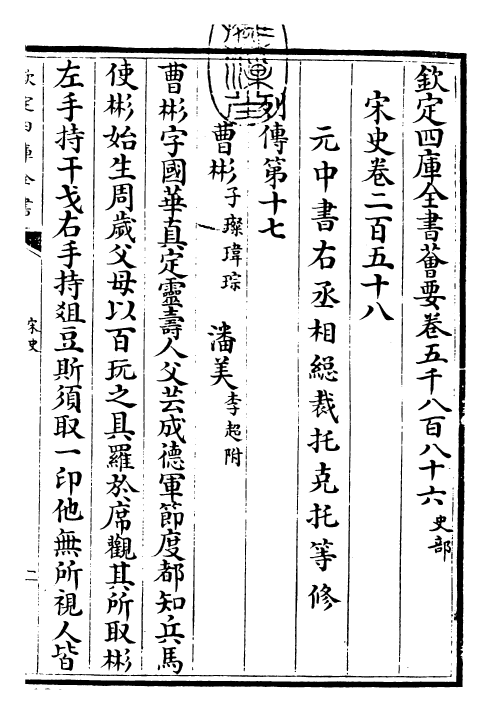 欽定四庫全書薈要卷五千八百八十六 史部
宋史卷二百五十八
元中書右丞相總裁托克托等修
列傳第十七
曹彬 子璨瑋琮 潘美 李超附
曹彬字國華真定靈壽人父芸成德軍節度都知兵馬
使彬始生周歲父母以百玩之具羅於席觀其所取彬
左手持干戈右手持俎豆斯須取一印他無所視人皆
欽定四庫全書
宋史